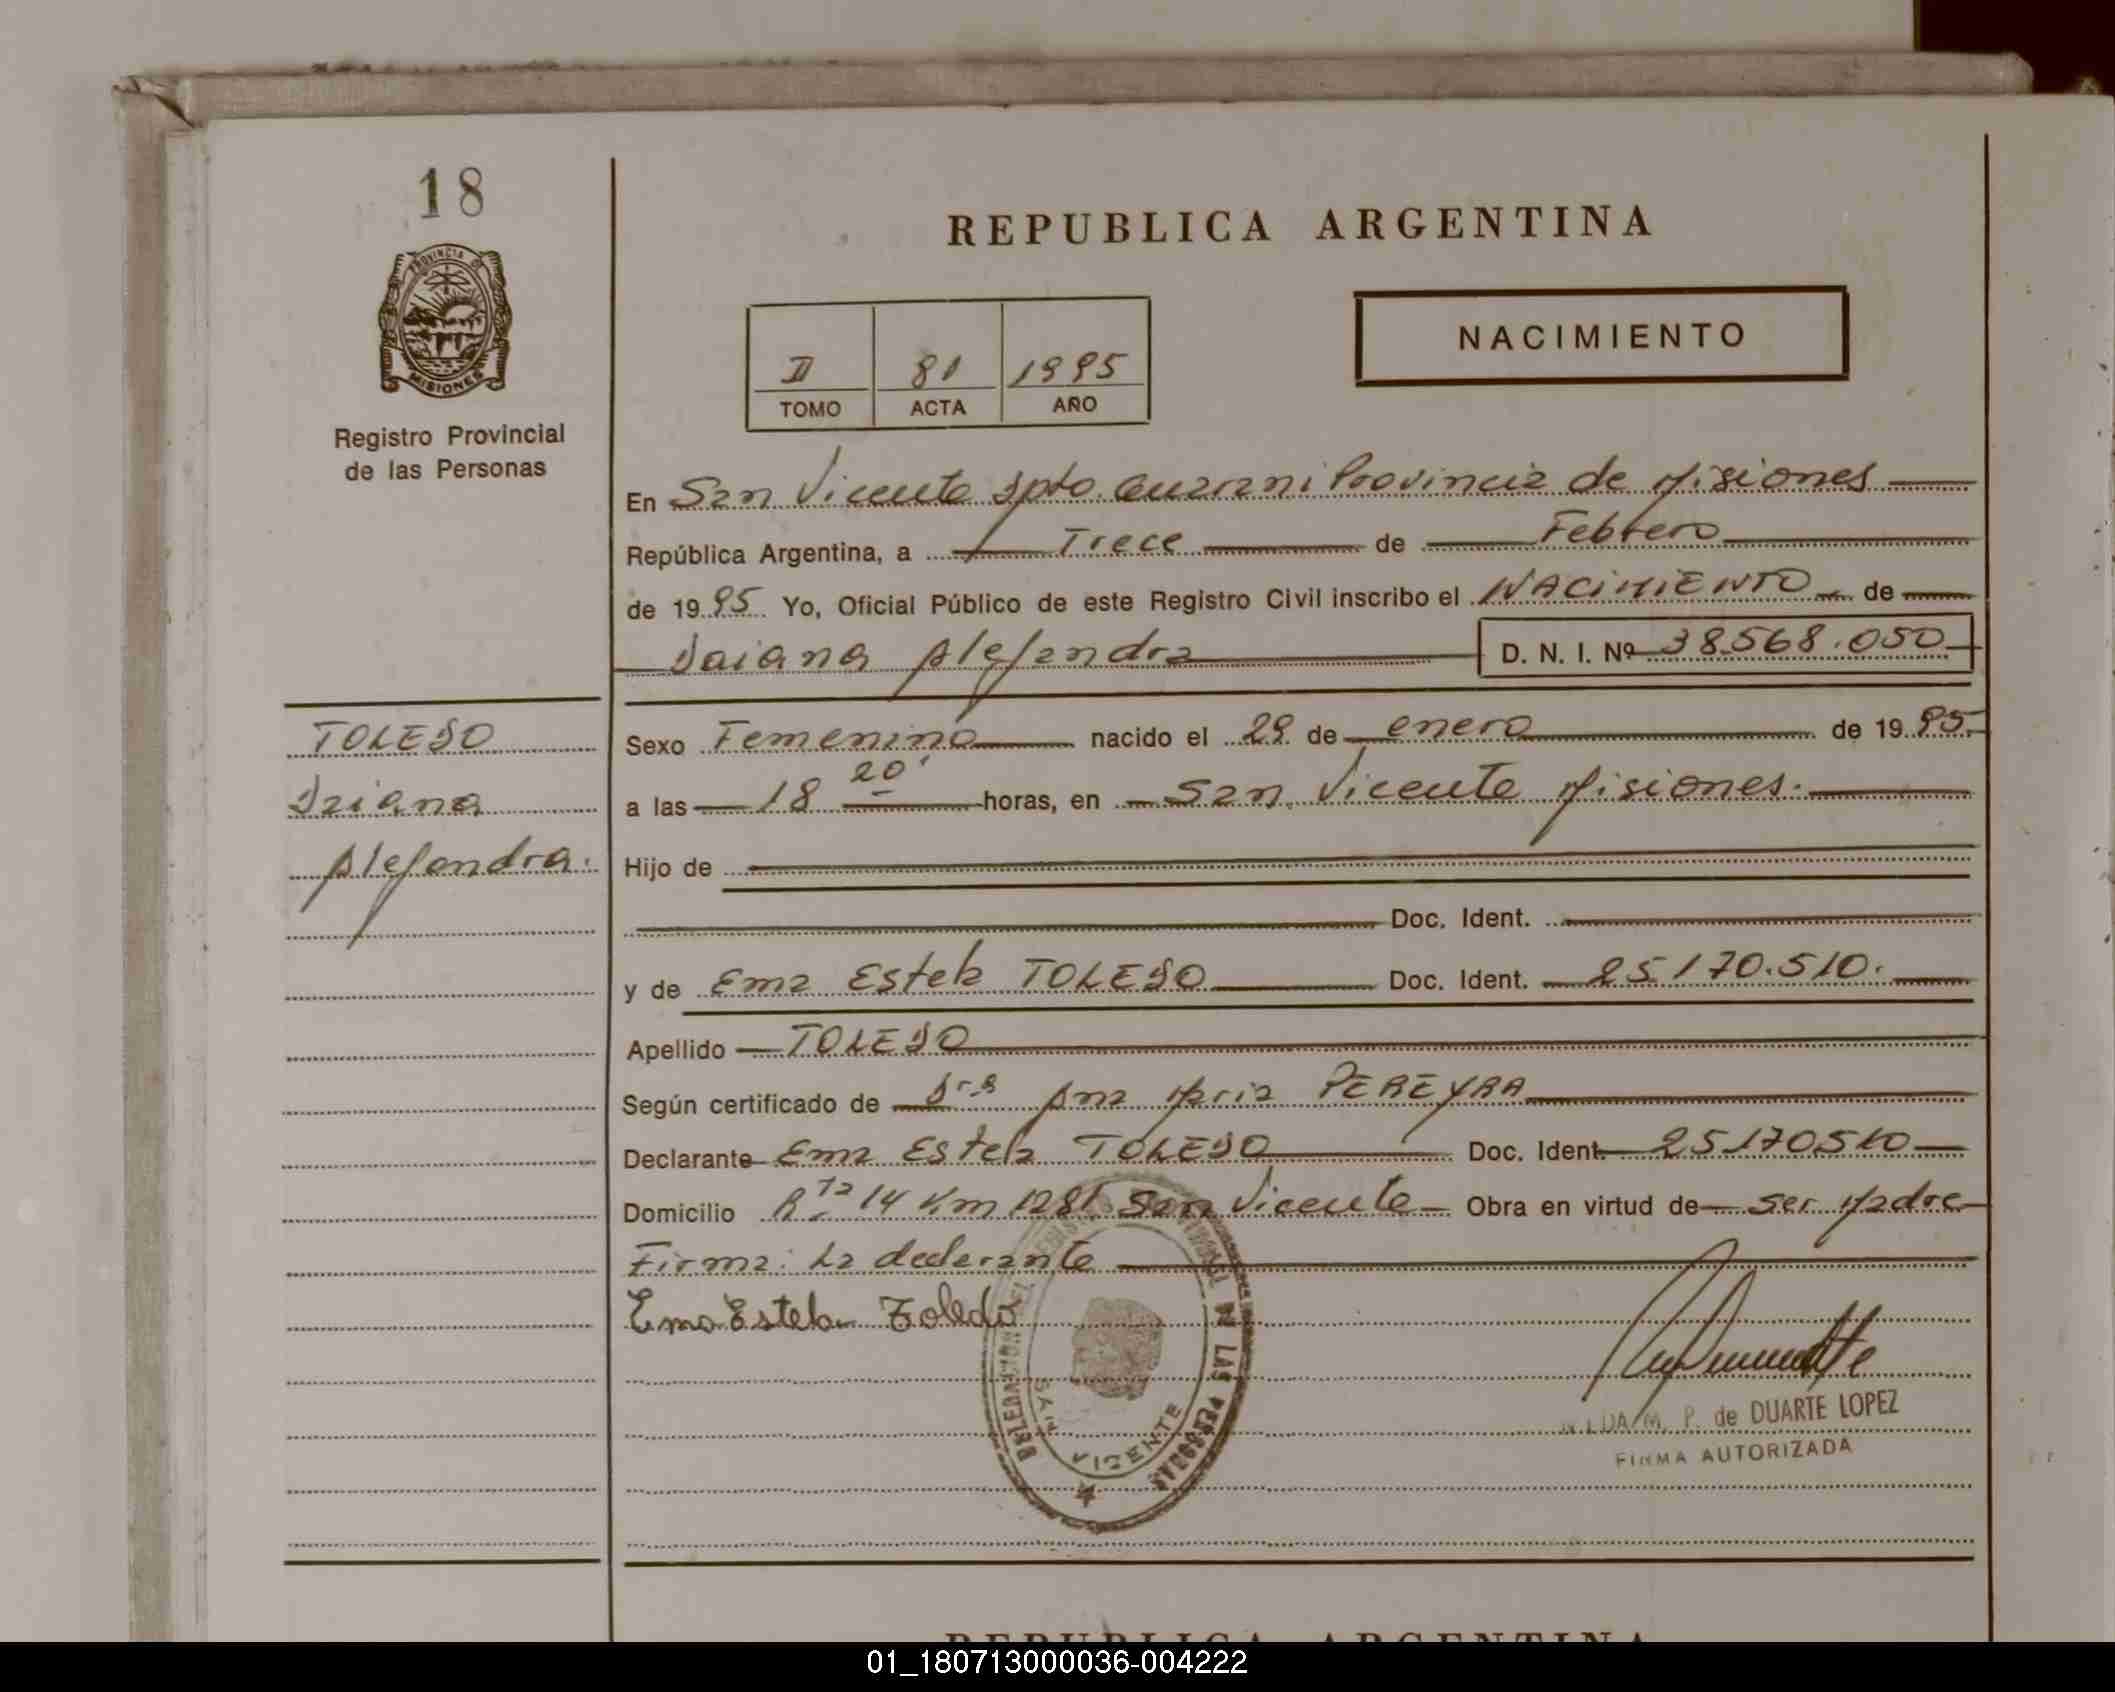 18
PROVINCIA DE
MISIONES
Registro Provincial
de las Personas
REPUBLICA ARGENTINA
NACIMIENTO
II 81 1995
TOMO ACTA AÑO
En San Vicente Dpto. Guarani Provincia de Misiones
República Argentina, a Trece de Febrero
de 1995 Yo, Oficial Público de este Registro Civil inscribo el NACIMIENTO de
Daiana Alejandra D. N. I. Nº 38568.050
TOLEDO
Daiana
Alejandra.
Sexo Femenino nacido el 29 de enero de 1995.
a las 18 20' horas, en San Vicente Misiones.
Hijo de
Doc. Ident.
y de Ema Estela TOLEDO Doc. Ident. 25.170.510.
Apellido TOLEDO
Según certificado de Dra Ana Maria PEREYRA
Declarante Ema Estela TOLEDO Doc. Ident. 25170510
Domicilio Rta 14 Km 1281 San Vicente Obra en virtud de ser Madre
Firma: La declarante
Ema Estela Toledo
DELEGACION DEL LAS PERSONAS
SAN VICENTE
M. P. de DUARTE LOPEZ
FIRMA AUTORIZADA
REPUBLICA ARGENTINA
01_180713000036-004222